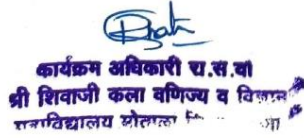 कार्यक्रम अधिकारी रा.स.यो
श्री शिवाजी कला वणिज्य व विज्ञान
महाविद्यालय मोताळा